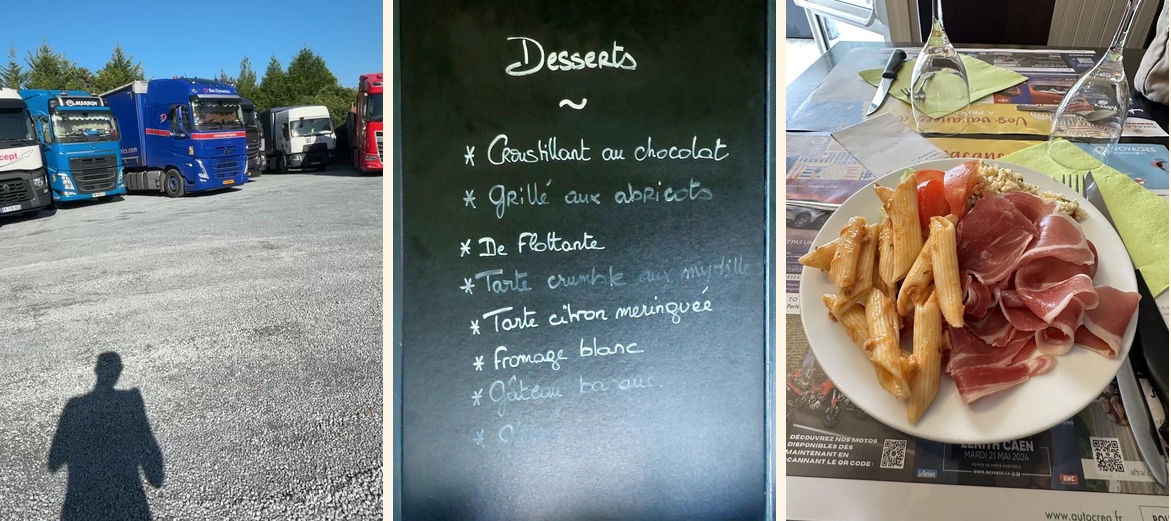 MARRON
cept
Desserts
~
* Croustillant au chocolat
* Grillé aux abricots
* De Flottante
* Tarte crumble aux myrtille
* Tarte citron meringuée
* fromage blanc
* Gâteau basque
Vos vacances
VOYAGES
DÉCOUVREZ NOS MOTOS
DISPONIBLES DÈS
MAINTENANT EN
SCANNANT LE QR CODE
ZENITH CAEN
MARDI 21 MAI 2024
RMC
www.autocrea.fr